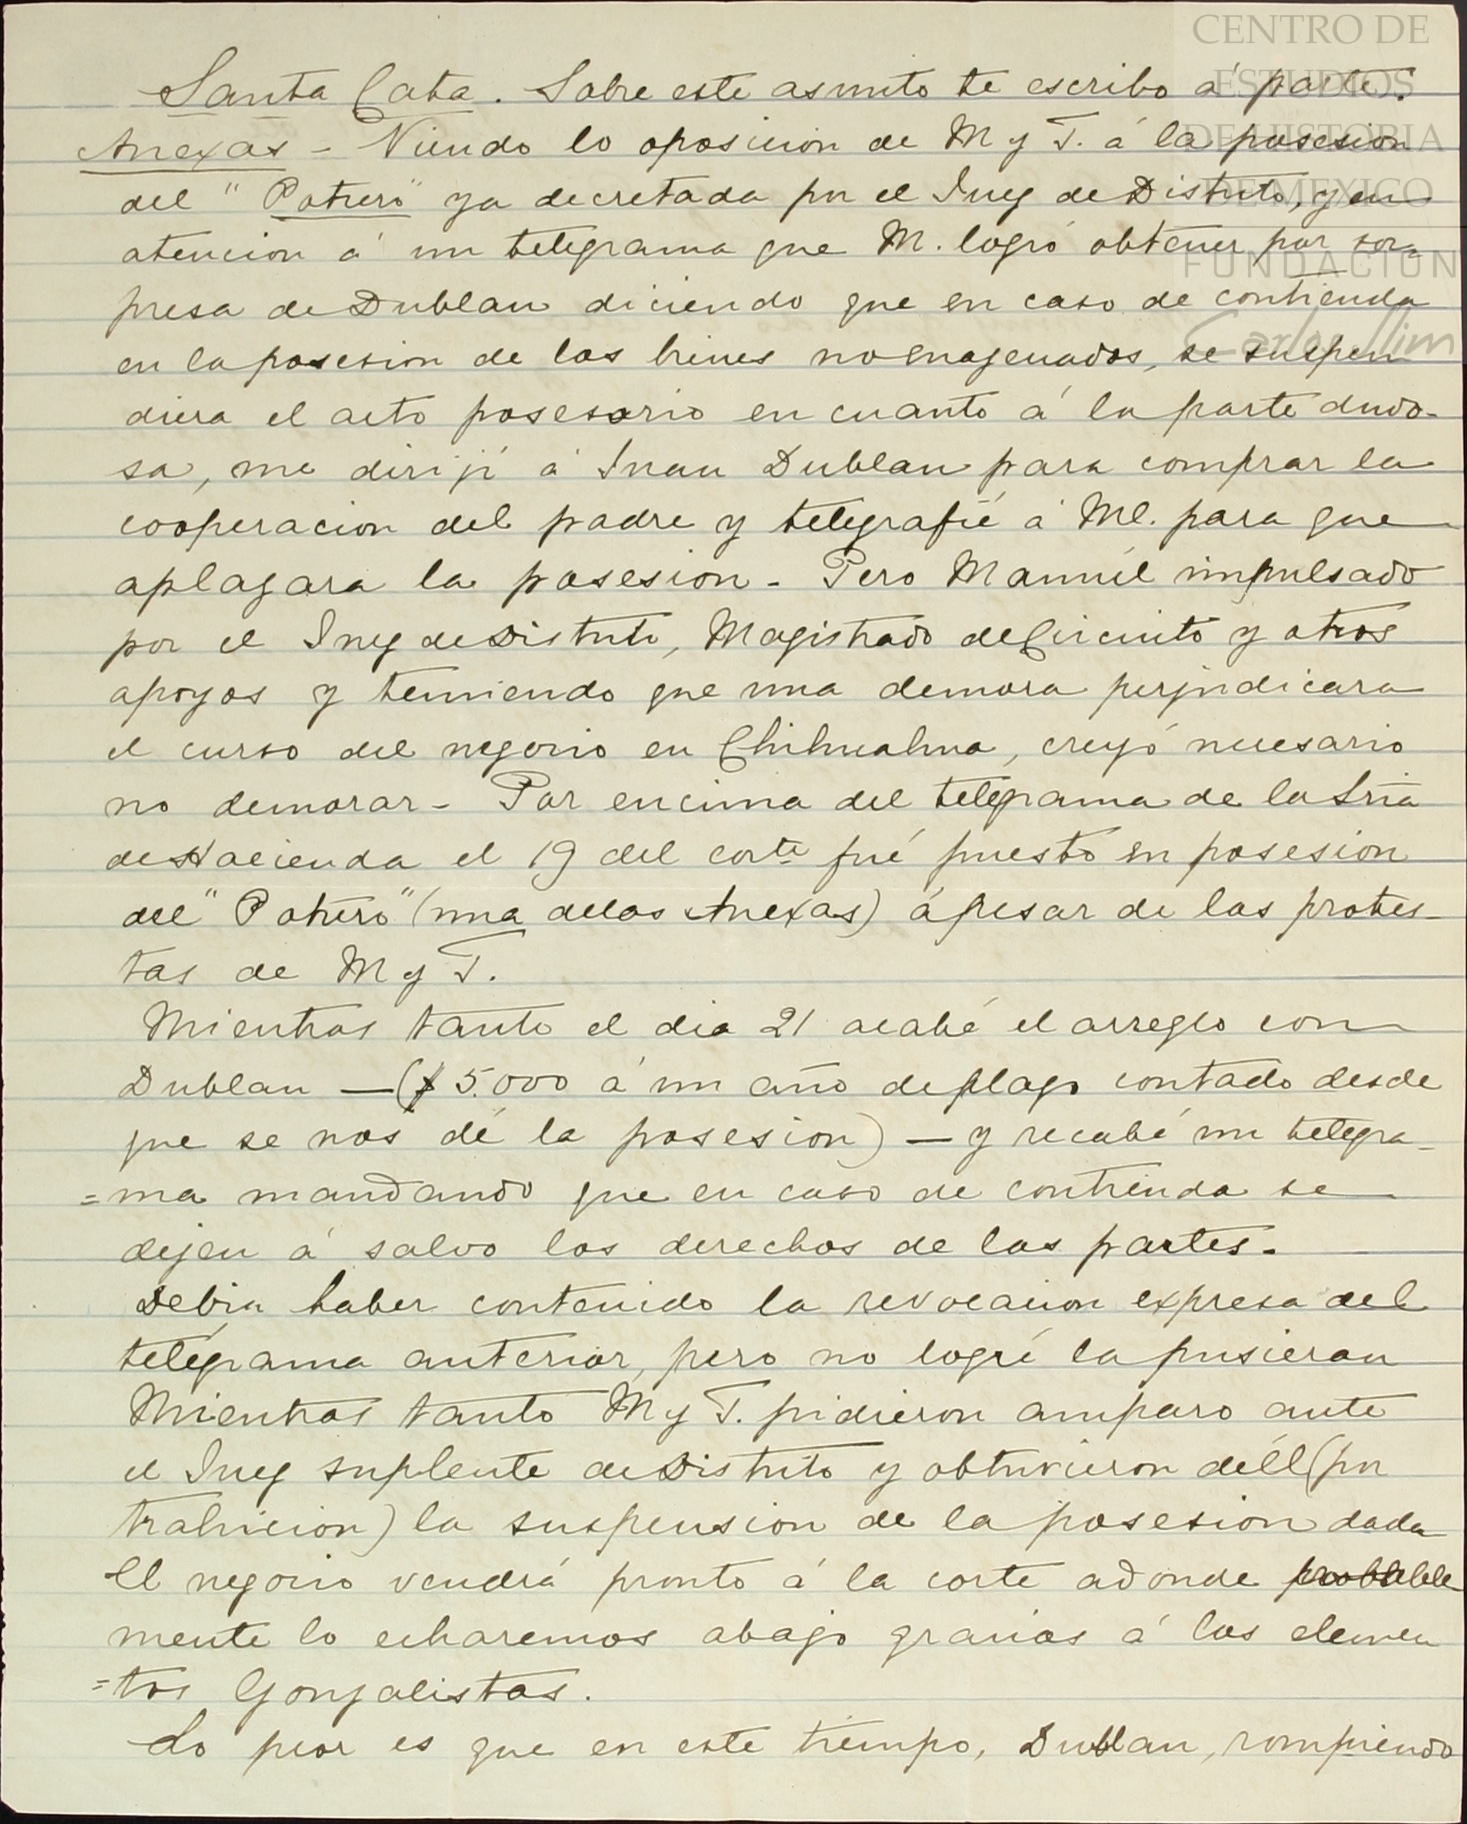 CENTRO DE
ESTUDIOS
DE HISTORIA
DE MEXICO
FUNDACION
Carlos Slim
Santa Cata. Sobre este asunto te escribo á parte.
Anexas - Viendo lo oposicion de M y T. á la posesion
del "Potrero" ya decretada por el Juez de Distrito, y en
atencion á un telegrama que M. logró obtener por sor-
presa de Dublan diciendo que en caso de contienda
en la posesion de los bienes no enagenados, se suspen
diera el acto posesorio en cuanto á la parte dudo-
sa, me dirijí á Juan Dublan para comprar la
cooperacion del padre y telegrafié á Ml. para que
aplazara la posesion - Pero Manuel impulsado
por el Juez de Distrito, Magistrado de Circuito y otros
apoyos y temiendo que una demora perjudicara
el curso del negocio en Chihuahua, creyó necesario
no demorar - Por encima del telegrama de la Sria
de Hacienda el 19 del corte fué puesto en posesion
del "Potrero" (una de las Anexas) á pesar de las protes-
tas de M y T.
Mientras tanto el dia 21 acabé el arreglo con
Dublan — ($ 5.000 á un año de plazo contado desde
que se nos dé la posesion) — y recabé un telegra-
=ma mandando que en caso de contienda se
dejen á salvo los derechos de las partes.
Debia haber contenido la revocacion expresa del
telégrama anterior, pero no logré la pusieran
Mientras tanto M y T. pidieron amparo ante
el Juez suplente de Distrito y obtuvieron dél (por
trahicion) la suspension de la posesion dada
El negocio vendrá pronto á la corte adonde probable
mente lo echaremos abajo gracias á los elemen
=tos Gonzalistas.
Lo peor es que en este tiempo, Dublan, rompiendo